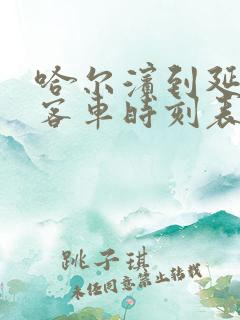 哈尔滨到延
客车时刻表
跳子琪
未经同意禁止转载